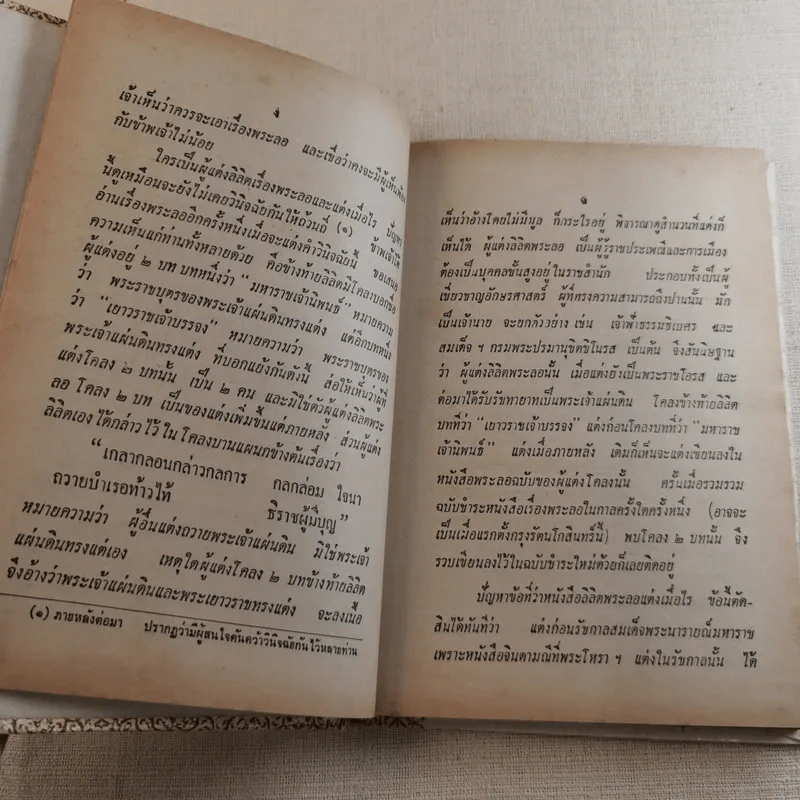 ง
เจ้าเห็นว่าควรจะเอาเรื่องพระลอ และเชื่อว่าคงจะมีผู้เห็นพ้อง
กับข้าพเจ้าไม่น้อย
ใครเป็นผู้แต่งลิลิตเรื่องพระลอและแต่งเมื่อไร ปัญหา
นี้ดูเหมือนจะยังไม่เคยวินิจฉัยกันให้ถ้วนถี่ (๑) ข้าพเจ้าได้
อ่านเรื่องพระลออีกครั้งหนึ่งเมื่อจะแต่งคำวินิจฉัยนี้ ขอเสนอ
ความเห็นแก่ท่านทั้งหลายด้วย คือข้างท้ายลิลิตมีโคลงบอกชื่อ
ผู้แต่งอยู่ ๒ บท บทหนึ่งว่า “มหาราชเจ้านิพนธ์” หมายความ
ว่า พระราชบุตรของพระเจ้าแผ่นดินทรงแต่ง แต่อีกบทหนึ่ง
ว่า “เยาวราชเจ้าบรรจง” หมายความว่า พระราชบุตรของ
พระเจ้าแผ่นดินทรงแต่ง ที่บอกแย้งกันดังนี้ ส่อให้เห็นว่าผู้ที่
แต่งโคลง ๒ บทนั้น เป็น ๒ คน และมิใช่ตัวผู้แต่งลิลิตพระ
ลอ โคลง ๒ บท เป็นของแต่งเพิ่มขึ้นแต่ภายหลัง ส่วนผู้แต่ง
ลิลิตเอง ได้กล่าวไว้ใน โคลงบานแผนกข้างต้นเรื่องว่า
“เกลากลอนกล่าวกลการ กลกล่อม ใจนา
ถวายบำเรอท้าวไท้ ธิราชผู้มีบุญ”
หมายความว่า ผู้อื่นแต่งถวายพระเจ้าแผ่นดิน มิใช่พระเจ้า
แผ่นดินทรงแต่เอง เหตุใดผู้แต่งโคลง ๒ บทข้างท้ายลิลิต
จึงอ้างว่าพระเจ้าแผ่นดินและพระเยาวราชทรงแต่ง จะลงเนื้อ
(๑) ภายหลังต่อมา ปรากฏว่ามีผู้สนใจค้นคว้าวินิจฉัยกันไว้หลายท่าน
เห็นว่าอ้างโดยไม่มีมูล ก็กระไรอยู่ พิจารณาดูสำนวนที่แต่งก็
เห็นได้ ผู้แต่งลิลิตพระลอ เป็นผู้รู้ราชประเพณีและการเมือง
ต้องเป็นบุคคลชั้นสูงอยู่ในราชสำนัก ประกอบทั้งเป็นผู้
เชี่ยวชาญอักษรศาสตร์ ผู้ที่ทรงความสามารถถึงปานนั้น มัก
เป็นเจ้านาย จะยกตัวอย่าง เช่น เจ้าฟ้าธรรมธิเบศร และ
สมเด็จ ฯ กรมพระปรมานุชิตชิโนรส เป็นต้น จึงสันนิษฐาน
ว่า ผู้แต่งลิลิตพระลอนั้น เมื่อแต่งยังเป็นพระราชโอรส และ
ต่อมาได้รับรัชทายาทเป็นพระเจ้าแผ่นดิน โคลงข้างท้ายลิลิต
บทที่ว่า “เยาวราชเจ้าบรรจง” แต่งก่อนโคลงบทที่ว่า “มหาราช
เจ้านิพนธ์” แต่งเมื่อภายหลัง เดิมก็เห็นจะแต่งเขียนลงใน
หนังสือพระลอฉบับของผู้แต่งโคลงนั้น ครั้นเมื่อรวมรวม
ฉบับชำระหนังสือเรื่องพระลอในกาลครั้งใดครั้งหนึ่ง (อาจจะ
เป็นเมื่อแรกตั้งกรุงรัตนโกสินทร์นี้) พบโคลง ๒ บทนั้น จึง
รวบเขียนลงไว้ในฉบับชำระใหม่ด้วยก็เลยติดอยู่
ปัญหาข้อที่ว่าหนังสือลิลิตพระลอแต่งเมื่อไร ข้อนี้ตัด-
สินได้ทันทีว่า แต่งก่อนรัชกาลสมเด็จพระนารายณ์มหาราช
เพราะหนังสือจินดามณีที่พระโหรา ฯ แต่งในรัชกาลนั้น ได้